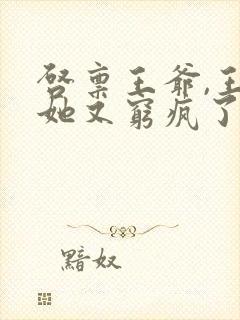 启禀王爷,王
她又穷疯了
黯奴